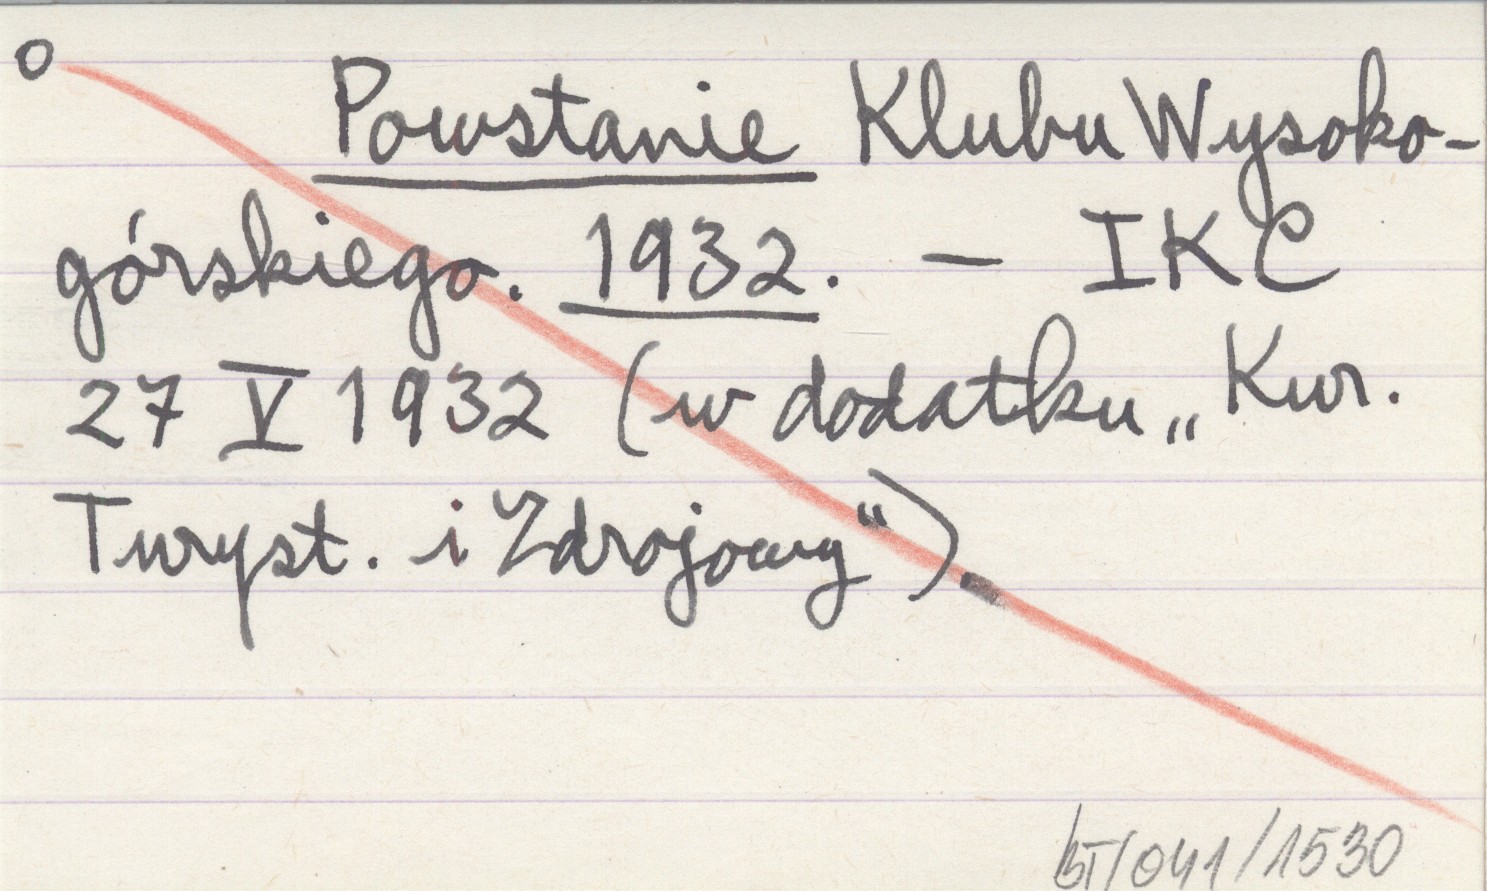 o
Powstanie Klubu Wysoko-
górskiego. 1932. — IKC
27 V 1932 (w dodatku „Kur.
Turyst. i Zdrojowy“).
BT/041/1530